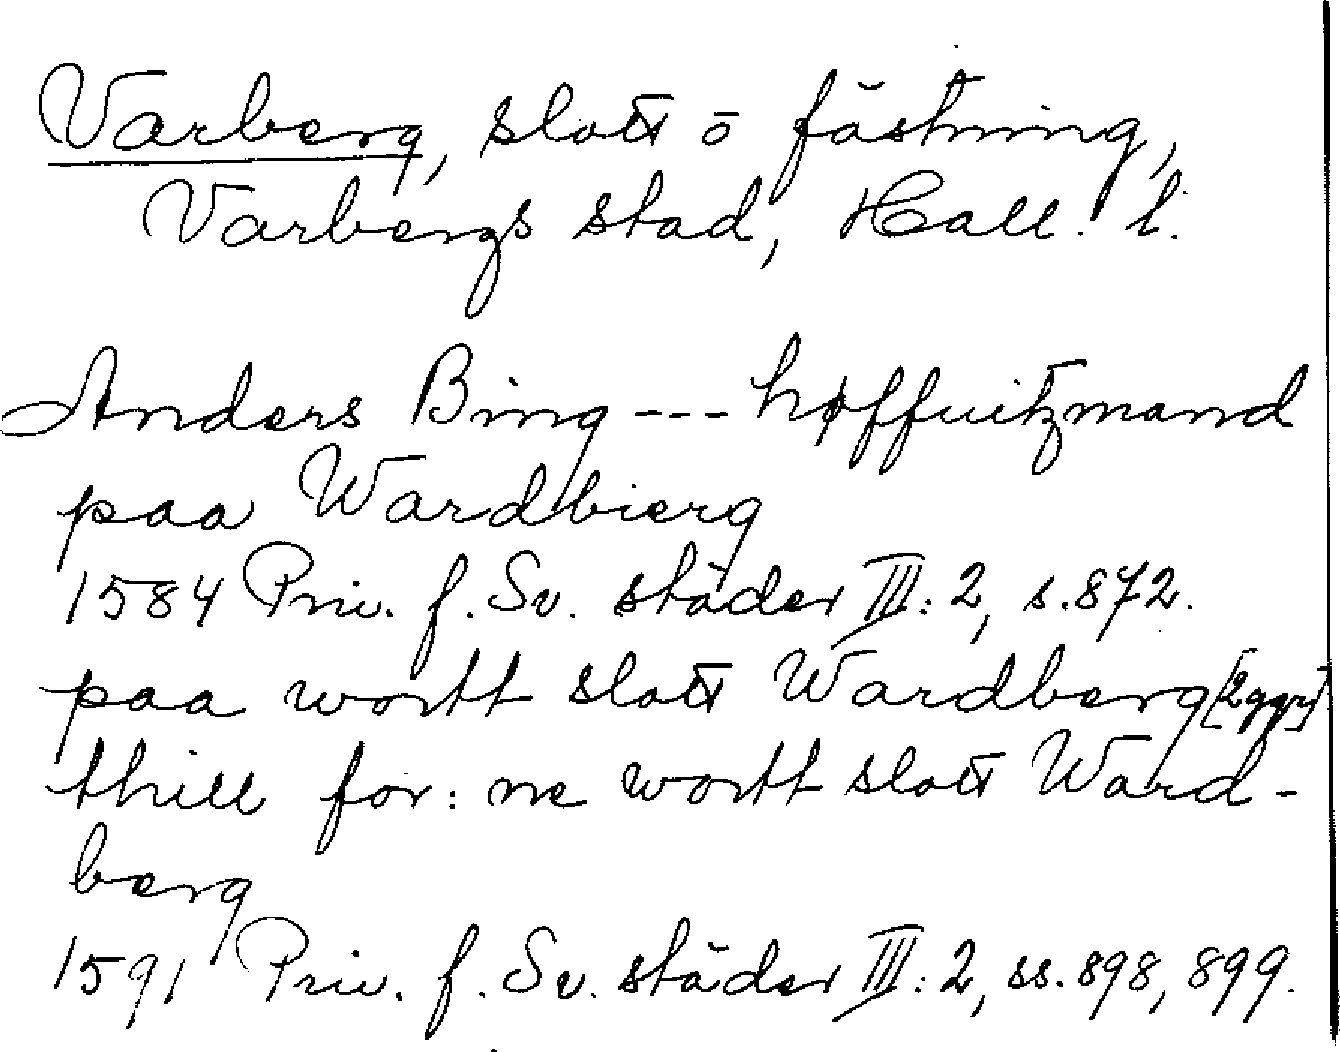 Varberg, slott o fästning,
Varbergs stad, Hall. l.
Anders Bing --- høffuitzmand
paa Wardbierg
1584 Priv. f. Sv. städer III: 2, s. 872.
paa wortt slott Wardberg [2 ggr]
thill for: ne wortt slott Ward-
berg
1591 Priv. f. Sv. städer III: 2, ss. 898, 899.